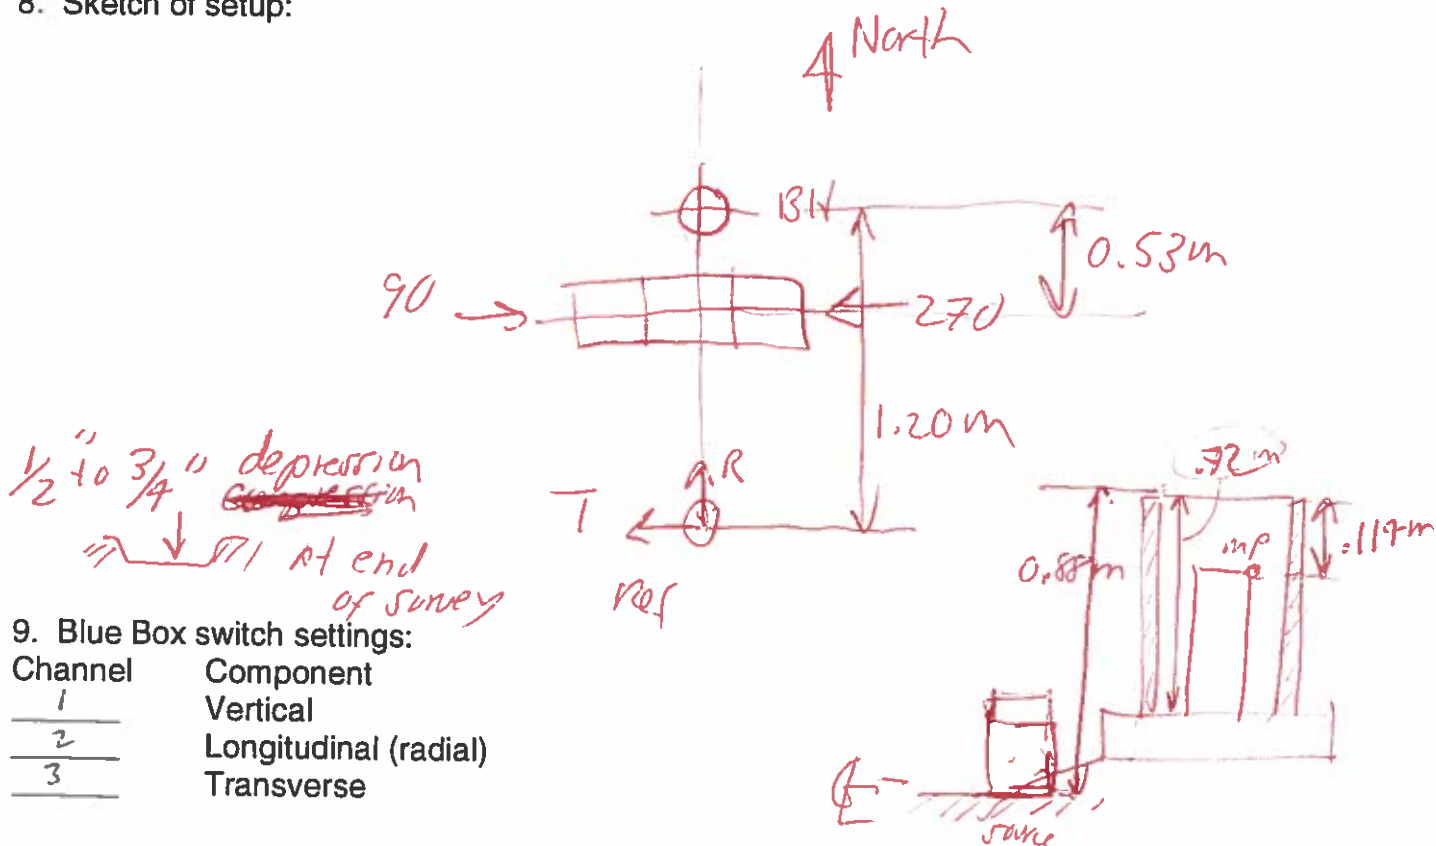 8. Sketch of setup:
North
BH
0.53m
90
270
1.20m
1/2" to 3/4" depression
At end
of survey
R
T
Ref
.72 m
mp
.117m
0.88m
source
9. Blue Box switch settings:
Channel Component
1 Vertical
2 Longitudinal (radial)
3 Transverse